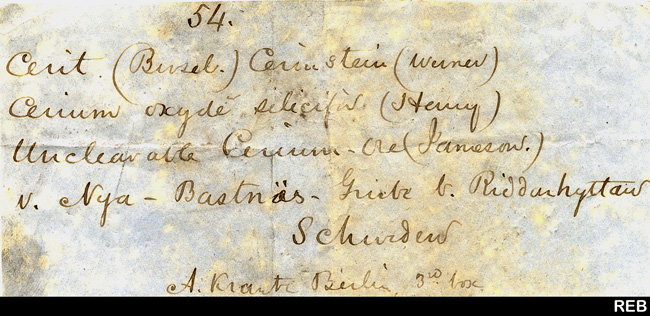 54.
Cerit. (Berzel.) Cerinstein (Werner)
Cerium oxydé silicifèr (Haüy)
Uncleavable Cerium-Ore (Jameson.)
v. Nya-Bastnäs-Grube b. Riddarhyttan
Schweden
A. Krantz Berlin 3rd box
REB